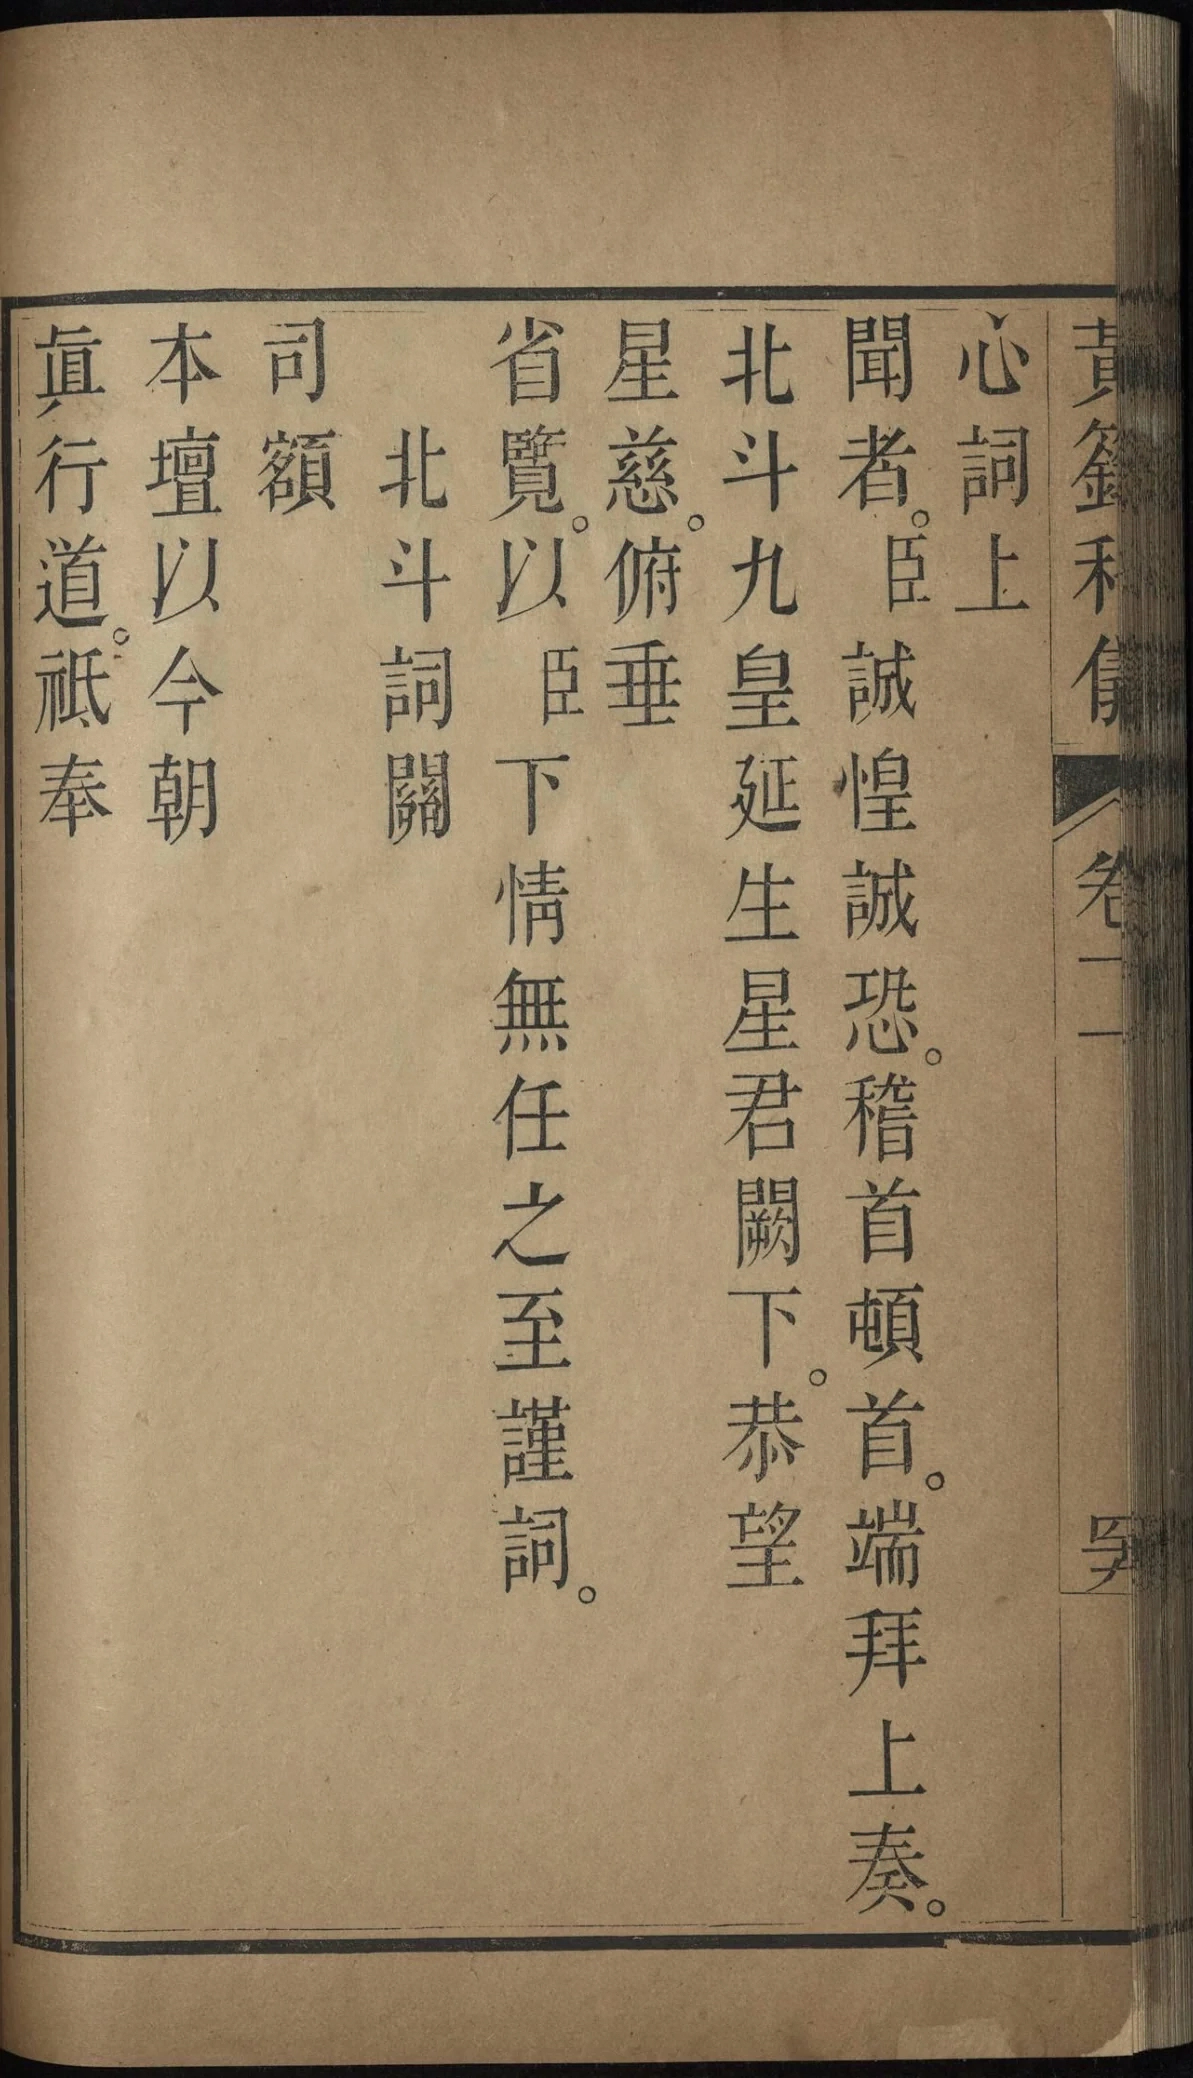 黃籙科儀 卷二
心詞上
聞者。臣誠惶誠恐。稽首頓首。端拜上奏。
北斗九皇延生星君闕下。恭望
星慈。俯垂
省覽。以臣下情無任之至謹詞。
北斗詞關
司額
本壇以今朝
眞行道。祗奉